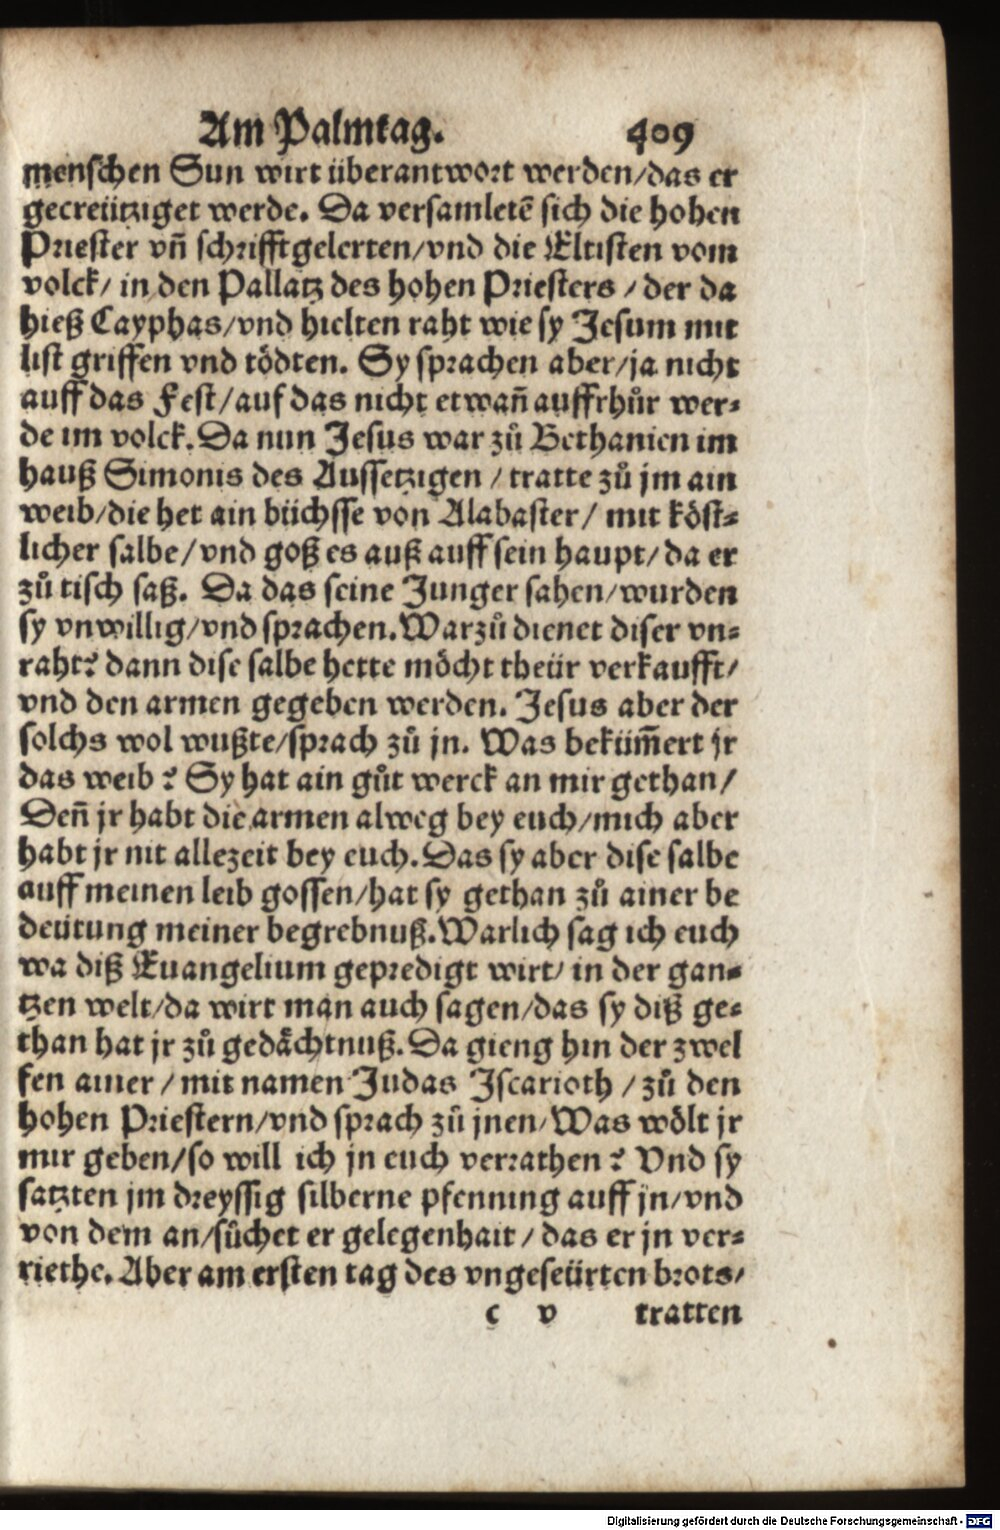 Am Palmtag. 409
menschen Sun wirt überantwort werden/das er
gecreütziget werde. Da versamletē sich die hohen
Priester vñ schrifftgelerten/vnd die Eltisten vom
volck/ in den Pallatz des hohen Priesters / der da
hieß Cayphas/vnd hielten raht wie sy Jesum mit
list griffen vnd tödten. Sy sprachen aber/ja nicht
auff das Fest/auf das nicht etwañ auffrhůr wer-
de im volck. Da nun Jesus war zů Bethanien im
hauß Simonis des Aussetzigen / tratte zů jm ain
weib/die het ain büchsse von Alabaster/ mit köst-
licher salbe/vnd goß es auß auff sein haupt/da er
zů tisch saß. Da das seine Junger sahen/wurden
sy vnwillig/vnd sprachen. Warzů dienet diser vn-
raht? dann dise salbe hette möcht theür verkaufft/
vnd den armen gegeben werden. Jesus aber der
solchs wol wußte/sprach zů jn. Was beküm̃ert jr
das weib? Sy hat ain gůt werck an mir gethan/
Deñ jr habt die armen alweg bey euch/mich aber
habt jr nit allezeit bey euch. Das sy aber dise salbe
auff meinen leib gossen/hat sy gethan zů ainer be
deütung meiner begrebnuß. Warlich sag ich euch
wa diß Euangelium gepredigt wirt/ in der gan-
tzen welt/da wirt man auch sagen/das sy diß ge-
than hat jr zů gedächtnuß. Da gieng hin der zwel
fen ainer / mit namen Judas Jscarioth / zů den
hohen Priestern/vnd sprach zů jnen/Was wölt jr
mir geben/so will ich jn euch verrathen? Vnd sy
satzten jm dreyssig silberne pfenning auff jn/vnd
von dem an/sůchet er gelegenhait / das er jn ver-
riethe. Aber am ersten tag des vngeseürten brots/
c v tratten
Digitalisierung gefördert durch die Deutsche Forschungsgemeinschaft - DFG